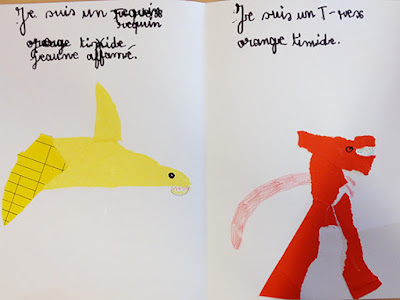 Je suis un requin
requin
orange timide
jeaune affamé.
Je suis un T-rex
orange timide.